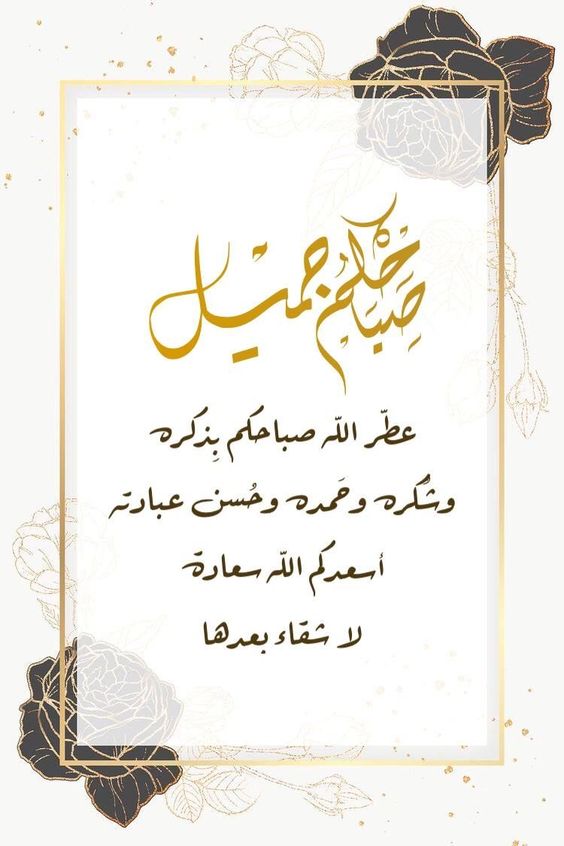 صِبَاحكمُ جميل
عطّر اللّه صباحكم بِذكره
وشُكره وحَمده وحُسن عبادته
أسعدكم اللّه سعادة
لا شقاء بعدها